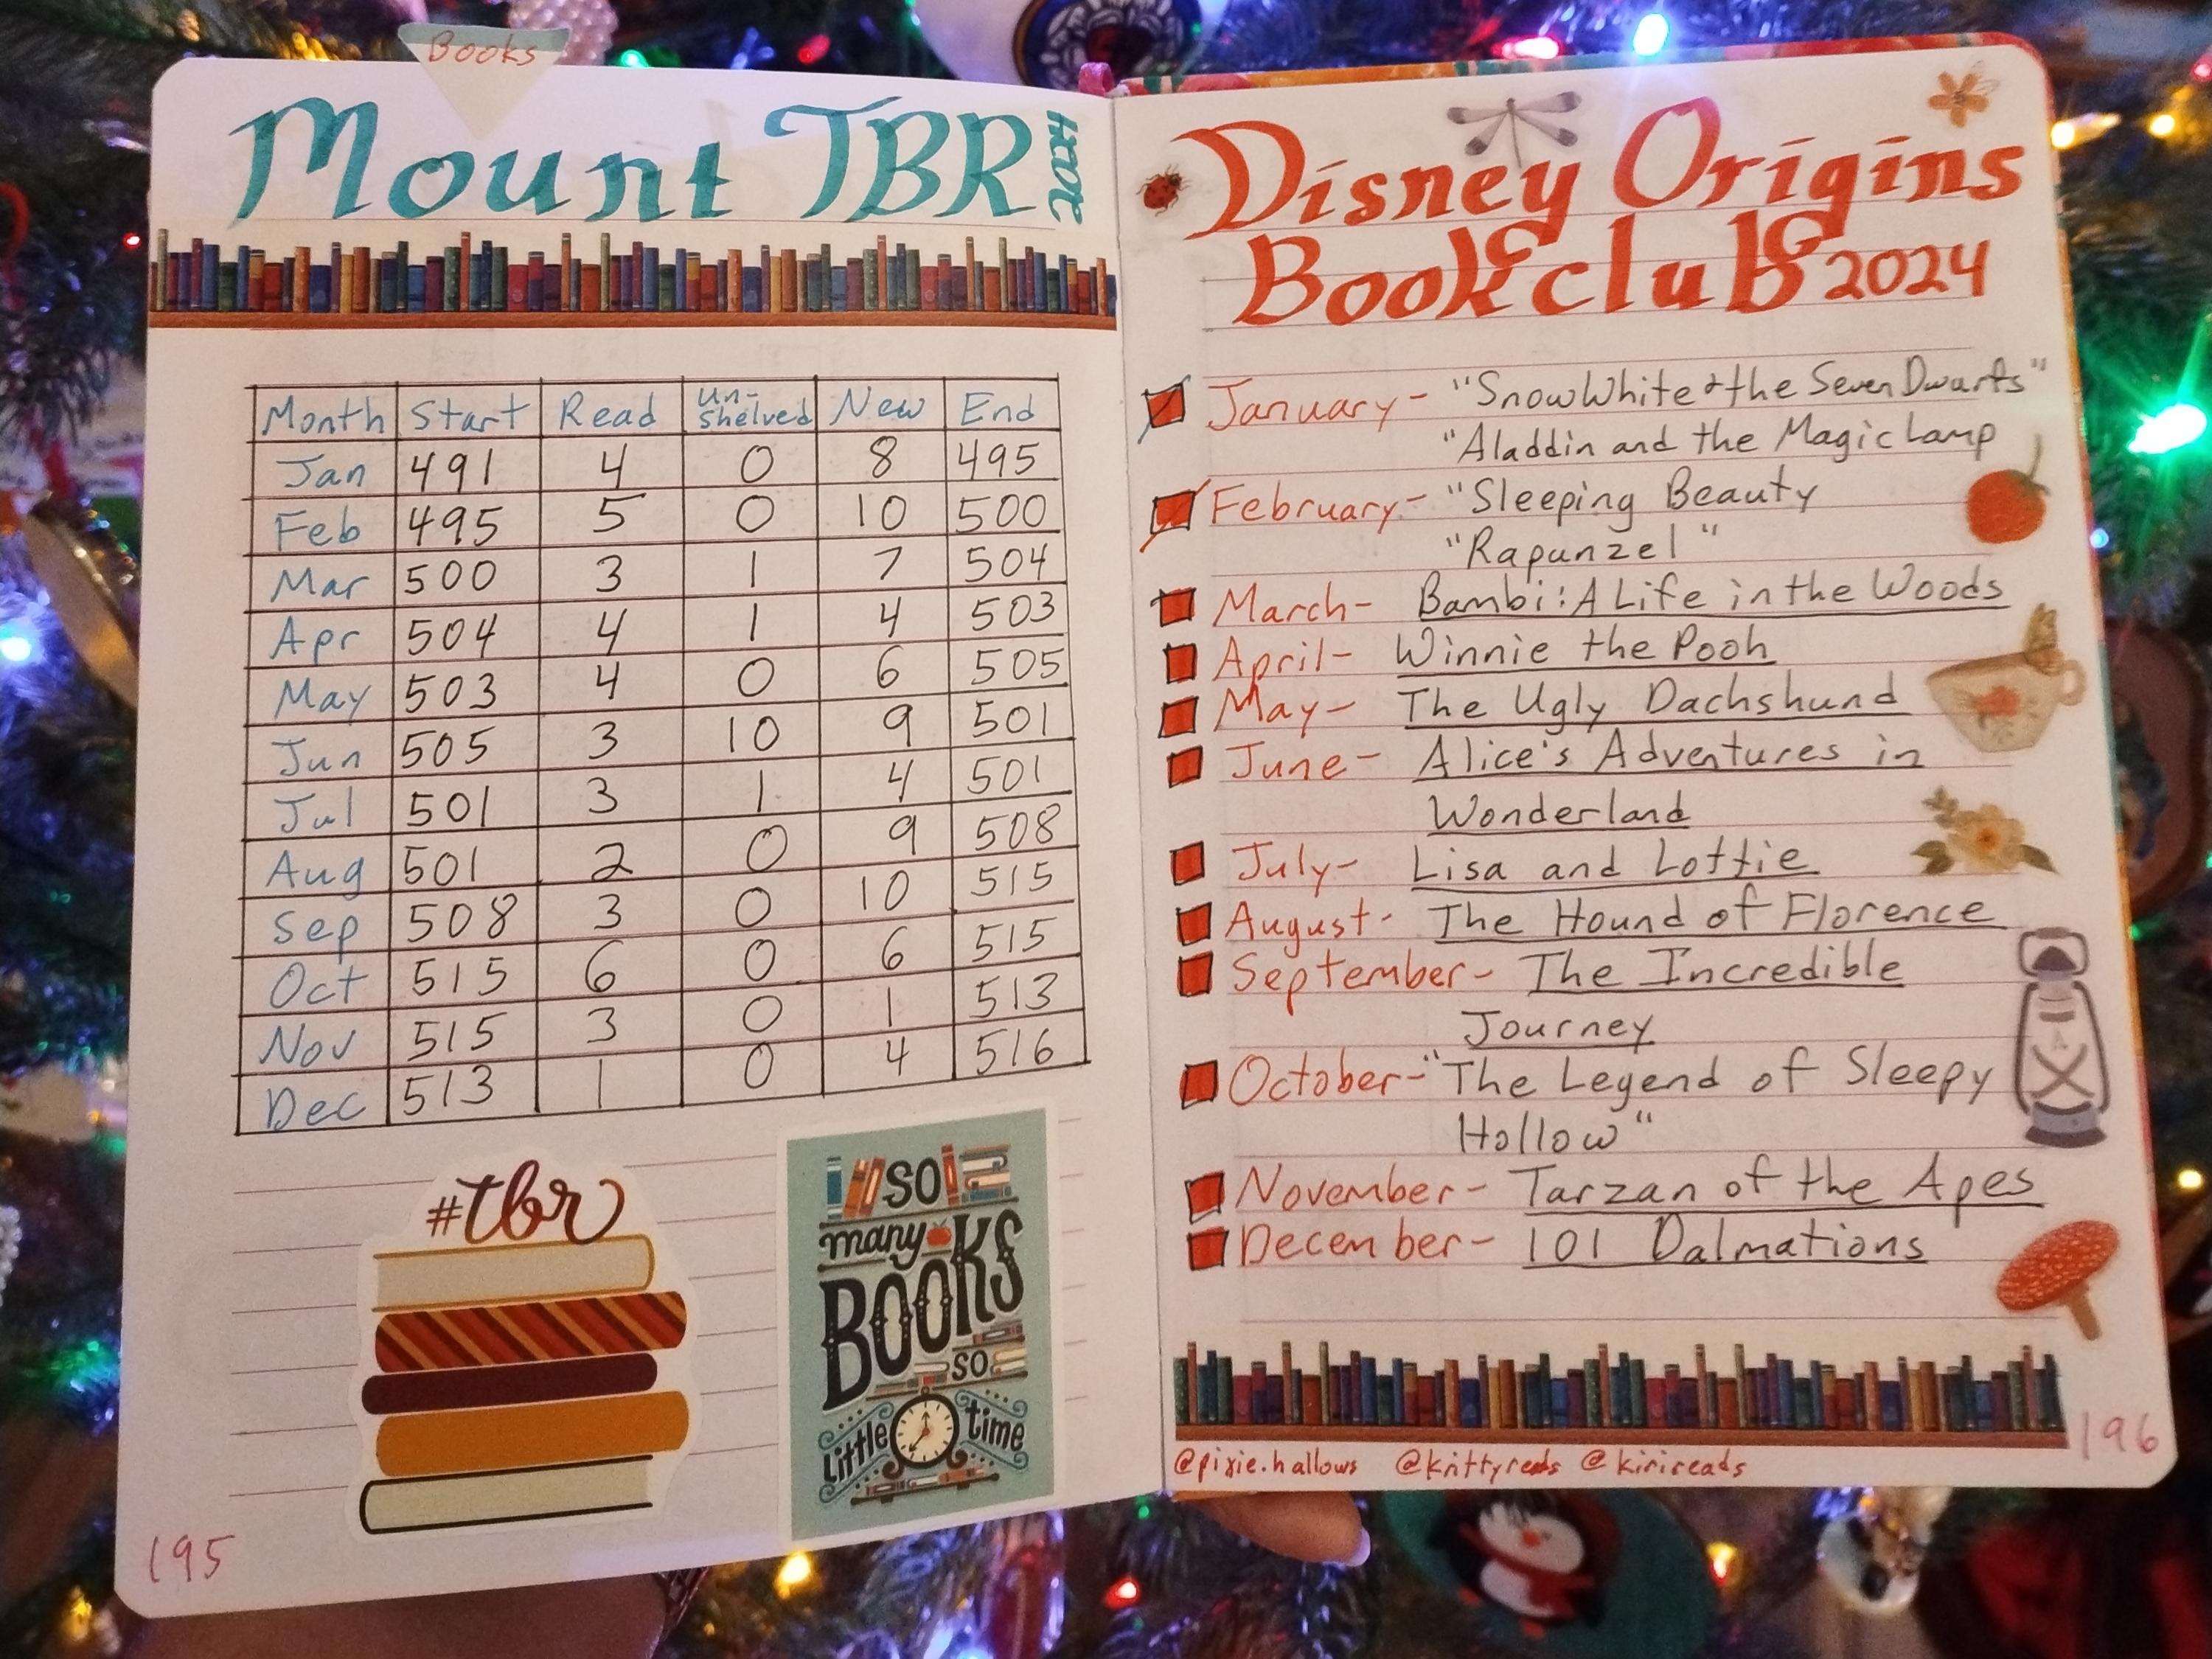 Books
Mount TBR 2024
Month Start Read Un-shelved New End
Jan 491 4 0 8 495
Feb 495 5 0 10 500
Mar 500 3 1 7 504
Apr 504 4 1 4 503
May 503 4 0 6 505
Jun 505 3 10 9 501
Jul 501 3 1 4 501
Aug 501 2 0 9 508
Sep 508 3 0 10 515
Oct 515 6 0 6 515
Nov 515 3 0 1 513
Dec 513 1 0 4 516
#tbr
so
many
BOOKS
so
little time
195
Disney Origins
Bookclub 2024
January - "Snow White & the Seven Dwarfs"
"Aladdin and the Magic Lamp
February - "Sleeping Beauty
"Rapunzel"
March - Bambi: A Life in the Woods
April - Winnie the Pooh
May - The Ugly Dachshund
June - Alice's Adventures in
Wonderland
July - Lisa and Lottie
August - The Hound of Florence
September - The Incredible
Journey
October - "The Legend of Sleepy
Hollow"
November - Tarzan of the Apes
December - 101 Dalmations
196
@pixie.hallows @kirireads